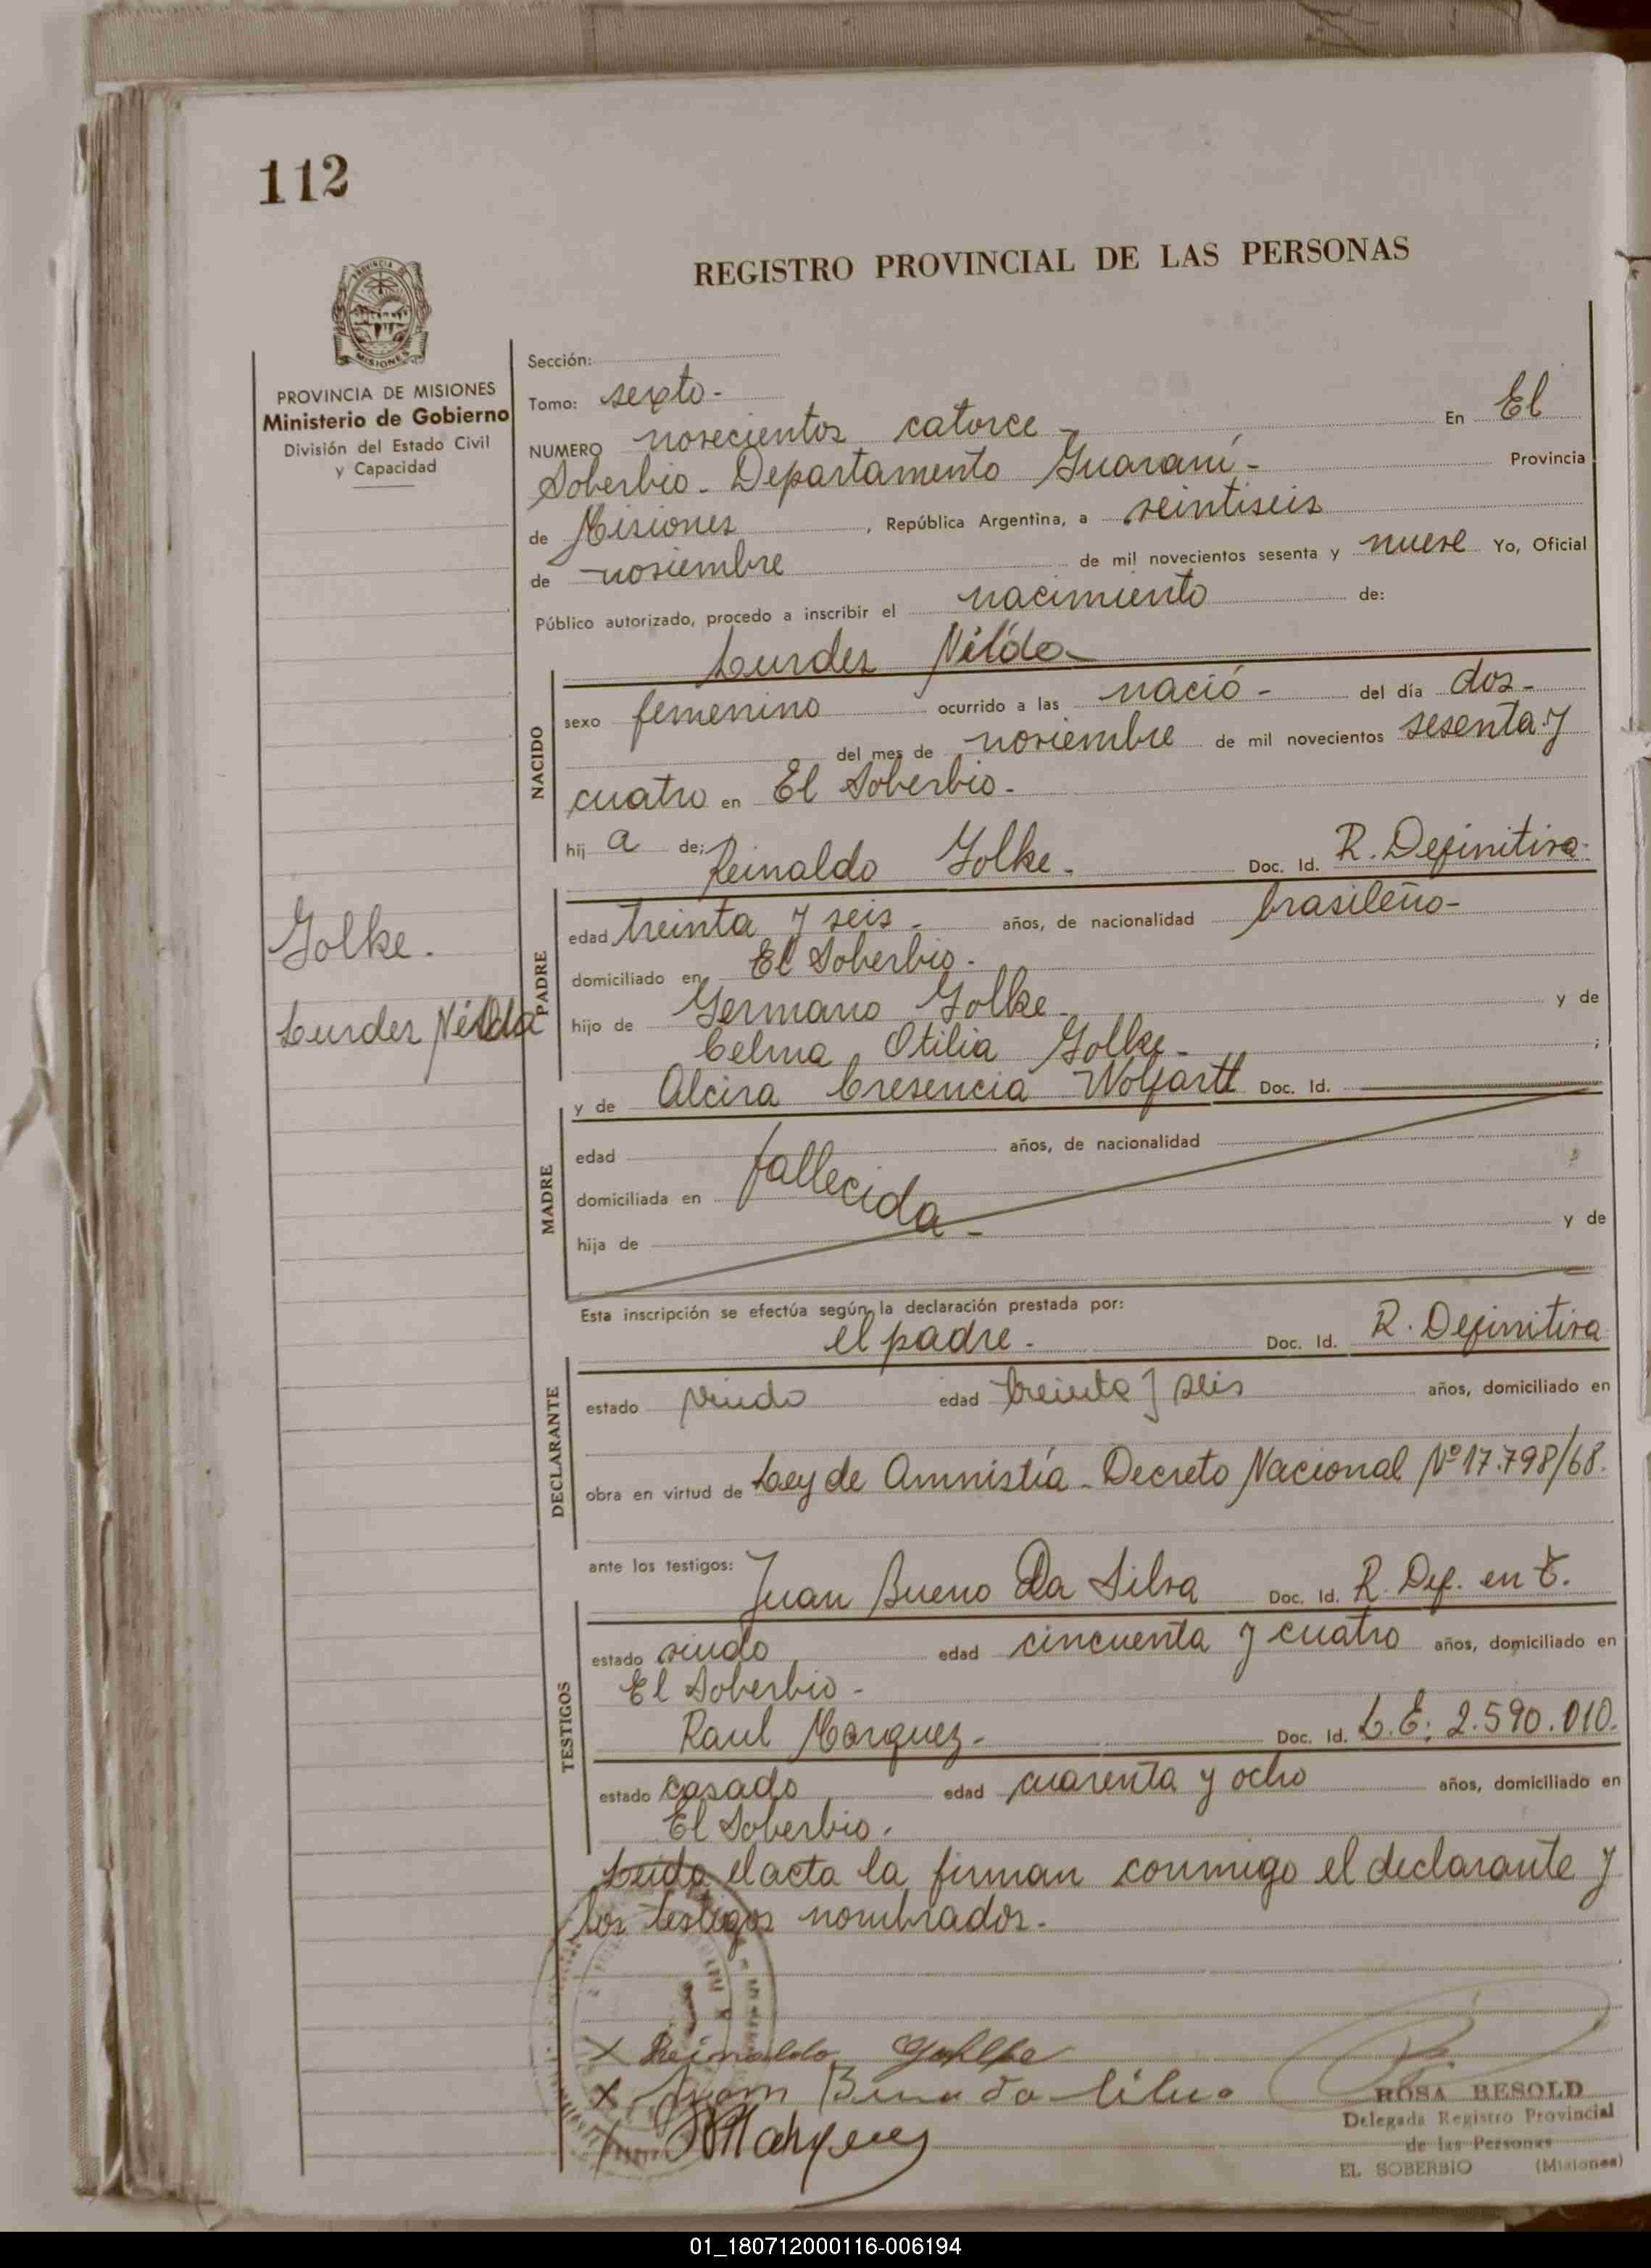 112
REGISTRO PROVINCIAL DE LAS PERSONAS
PROVINCIA DE MISIONES
Ministerio de Gobierno
División del Estado Civil
y Capacidad
Sección:
Tomo: sexto-
NUMERO novecientos catorce - En El
Soberbio - Departamento Guaraní - Provincia
de Misiones, República Argentina, a veintiseis
de noviembre de mil novecientos sesenta y nueve Yo, Oficial
Público autorizado, procedo a inscribir el nacimiento de:
Lurdes Nilda-
NACIDO
sexo femenino ocurrido a las nació - del día dos-
del mes de noviembre de mil novecientos sesenta y
cuatro en El Soberbio-
hij a de; Reinaldo Golke. Doc. Id. R. Definitiva-
PADRE
edad treinta y seis - años, de nacionalidad brasileño-
domiciliado en El Soberbio-
hijo de Germano Golke y de
Celma Otilia Golke- ;
Golke.
Lurdes Nilda
y de Alcira Cresencia Wolfartt Doc. Id.
MADRE
edad años, de nacionalidad
domiciliada en fallecida-
hija de y de
Esta inscripción se efectúa según la declaración prestada por:
el padre. Doc. Id. R. Definitiva
DECLARANTE
estado viudo edad treinta y seis años, domiciliado en
obra en virtud de Ley de Amnistía - Decreto Nacional Nº 17.798/68.
ante los testigos: Juan Bueno Da Silva Doc. Id. R. Def. en t.
TESTIGOS
estado viudo edad cincuenta y cuatro años, domiciliado en
El Soberbio-
Raul Marquez- Doc. Id. L.E: 2.590.010.
estado casado edad cuarenta y ocho años, domiciliado en
El Soberbio.
Leida el acta la firman conmigo el declarante y
los testigos nombrados-
X Reinaldo Gohlke
X Juan Bueno da Silva
X Marquez
ROSA BESOLD
Delegada Registro Provincial
de las Personas
EL SOBERBIO (Misiones)
01_180712000116-006194